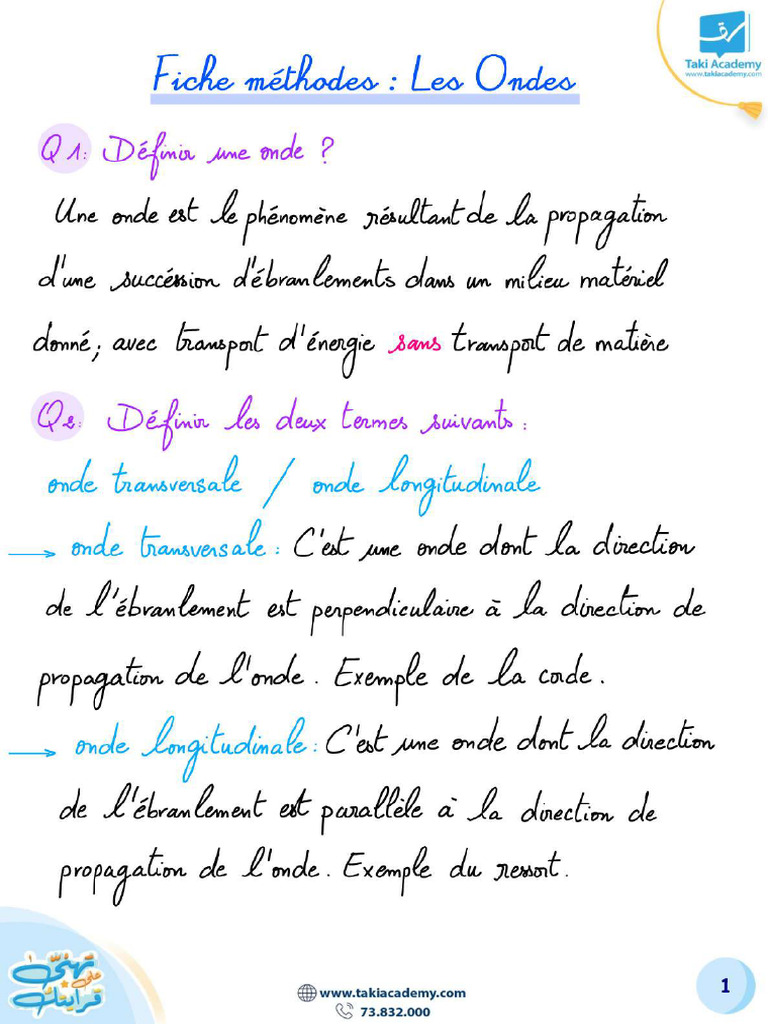 Taki Academy
www.takiacademy.com
Fiche méthodes : Les Ondes
Q1: Définir une onde ?
Une onde est le phénomène résultant de la propagation
d'une succéssion d'ébranlements dans un milieu matériel
donné; avec transport d'énergie sans transport de matière
Q2: Définir les deux termes suivants :
onde transversale / onde longitudinale
→ onde transversale : C'est une onde dont la direction
de l'ébranlement est perpendiculaire à la direction de
propagation de l'onde. Exemple de la corde.
→ onde longitudinale : C'est une onde dont la direction
de l'ébranlement est parallèle à la direction de
propagation de l'onde. Exemple du ressort.
تهنّى
على
قرايتك
www.takiacademy.com
73.832.000
1